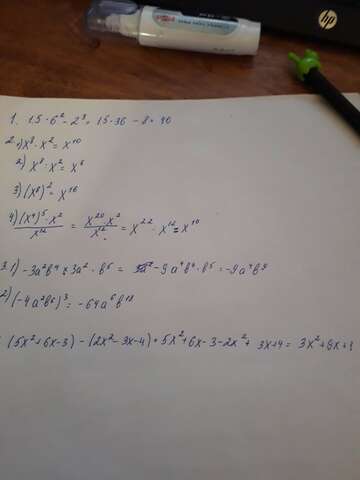 hp
1. 1.5 · 6² - 2³ = 15 · 36 - 8 = 40
2. 1) x⁸ · x² = x¹⁰
2) x⁸ · x² = x⁶
3) (x⁸)² = x¹⁶
4) (x⁴)⁵ · x² / x¹² = x²⁰ x² / x¹² = x²² · x¹² = x¹⁰
3. 1) -3a²b⁴ · 3a² · b⁵ = -9a⁴b⁴ · b⁵ = -9a⁴b⁹
2) (-4a²b⁶)³ = -64a⁶b¹⁸
(5x² + 6x - 3) - (2x² - 3x - 4) = 5x² + 6x - 3 - 2x² + 3x + 4 = 3x² + 9x + 1